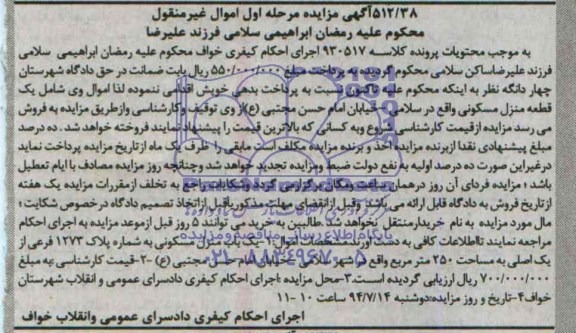 ۵۱۲/۳۸آگهی مزایده مرحله اول اموال غیرمنقول
محکوم علیه رمضان ابراهیمی سلامی فرزند علیرضا
به موجب محتویات پرونده کلاسه ۹۳۰۵۱۷ اجرای احکام کیفری خواف محکوم علیه رمضان ابراهیمی سلامی
فرزند علیرضاساکن سلامی محکوم گردیده به پرداخت مبلغ ۵۵۰/۰۰۰/۰۰۰ ریال بابت ضمانت در حق دادگاه شهرستان
چهار دانگه نظر به اینکه محکوم علیه تاکنون نسبت به پرداخت بدهی خویش اقدامی ننموده لذا اموال وی شامل یک
قطعه منزل مسکونی واقع در سلامی خیابان امام حسن مجتبی (ع)از وی توقیف وکارشناسی وازطریق مزایده به فروش
می رسد مزایده ازقیمت کارشناسی شروع وبه کسانی که بالاترین قیمت را پیشنهاد نمایند فروخته خواهد شد . ده درصد
مبلغ پیشنهادی نقدا ازبرنده مزایده اخذ و برنده مزایده مکلف است مابقی را ظرف یک ماه ازتاریخ مزایده پرداخت نماید
درغیراین صورت ده درصد اولیه به نفع دولت ضبط ومزایده تجدید خواهد شد وچنانچه روز مزایده مصادف با ایام تعطیل
باشد ؛ مزایده فردای آن روز درهمان ساعت ومکان برگزار می گردد وشکایات راجع به تخلف ازمقررات مزایده یک هفته
ازتاریخ فروش به دادگاه قابل ارائه می باشد وقبل ازانقضای مهلت مذکوریاقبل ازاتخاذ تصمیم دادگاه درخصوص شکایت ؛
مال مورد مزایده به نام خریدارمنتقل نخواهد شد .طالبین به خرید می توانند ۵ روز قبل ازموعد مزایده به اجرای احکام
مراجعه نمایند تااطلاعات کافی به دست آورند.مشخصات اموال:۱-یک باب منزل مسکونی به شماره پلاک ۱۲۷۳ فرعی از
یک اصلی به مساحت ۲۵۰ متر مربع واقع در شهر سلامی خیابان امام حسن مجتبی (ع) ۲-قیمت کارشناسی :به مبلغ
۷۰۰/۰۰۰/۰۰۰ ریال ارزیابی گردیده است.۳-محل مزایده :اجرای احکام کیفری دادسرای عمومی و انقلاب شهرستان
خواف۴-تاریخ و روز مزایده:دوشنبه ۹۴/۷/۱۴ ساعت ۱۰ -۱۱
اجرای احکام کیفری دادسرای عمومی وانقلاب خواف
پایگاه اطلاع رسانی مناقصه و مزایده
۰۲۱-۸۸۳۴۹۶۷۰-۵